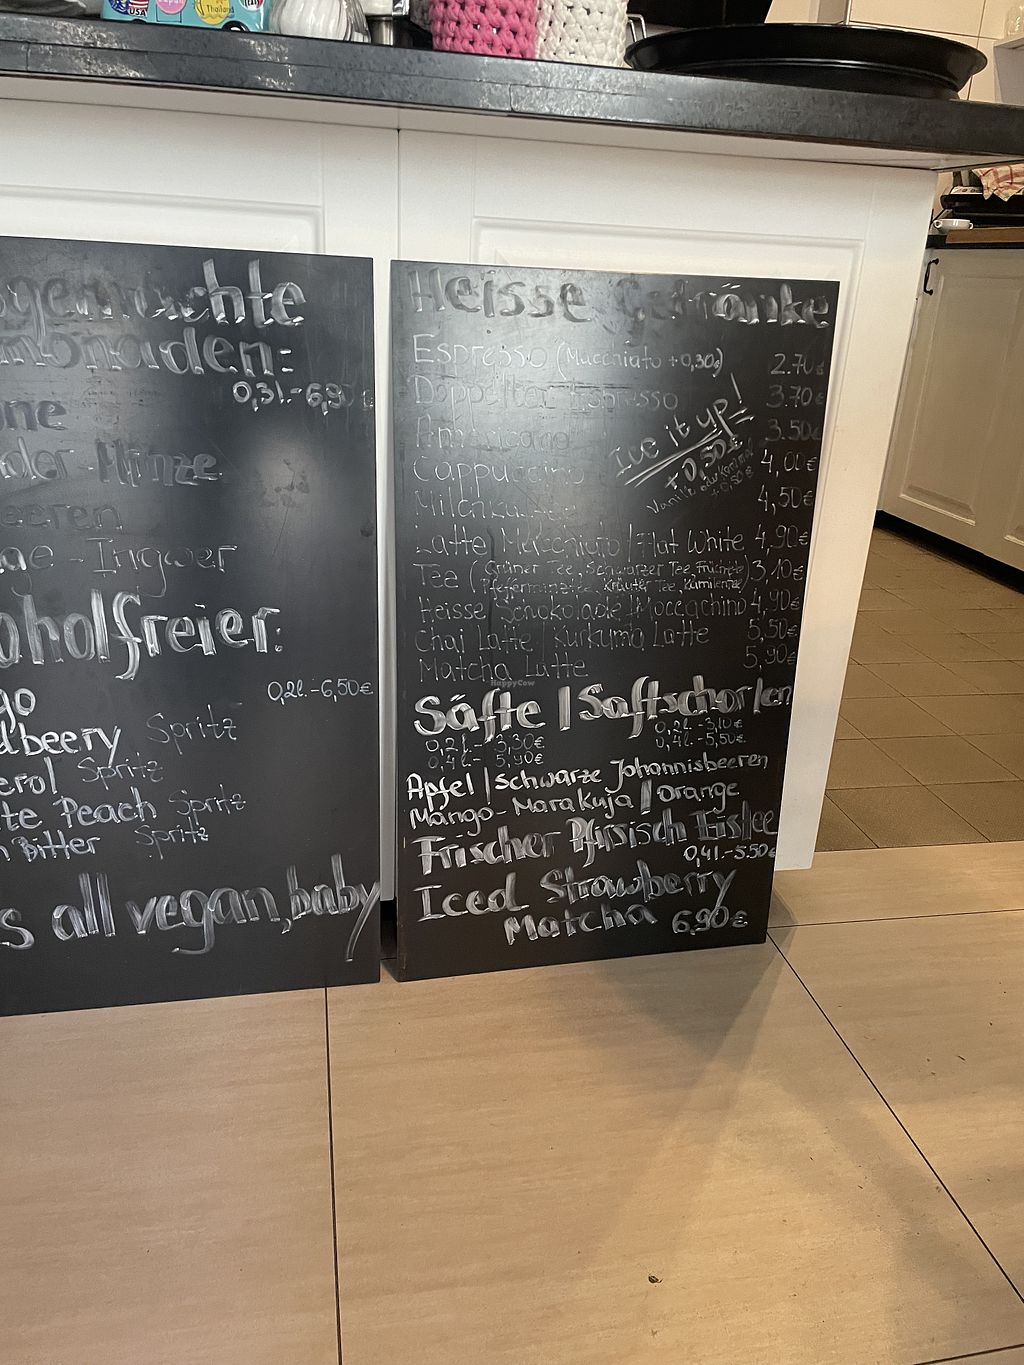 USA
Thailand
gemischte
monaden:
0,3l.-6,90
one
der-Minze
eeren
ge-Ingwer
oholfreier:
0,2l.-6,50€
go
dbeery Spritz
erol Spritz
te Peach Spritz
n Bitter Spritz
s all vegan, baby
Heisse Getränke
Espresso (Macchiato +0,30€) 2.70€
Doppelter Espresso 3.70€
Americano 3.50€
Ice it up!
+0,50€
Cappuccino 4,00€
Vanille oder
+0,50€
4,50€
Latte Macchiato/Flat White 4,90€
Tee (Grüner Tee, Schwarzer Tee, Früchtete 3,10€
Pfefferminztee, Kräuter Tee, Kamilentee)
Heisse Schokolade/Moccachino 4,90€
Chai Latte | Kurkuma Latte 5,50€
Matcha Latte 5,90€
HappyCow
Säfte | Saftschorlen
0,2l.- 3,30€ 0,2l.-3,10€
0,4l.- 5,90€ 0,4l.-5,50€
Apfel | schwarze Johannisbeeren
Mango-Marakuja | Orange
Frischer Pfirsich Eistee
0,4l.-5.50€
Iced Strawberry
Matcha 6,90€